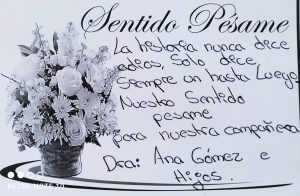 Sentido Pésame
La historia nunca dice
adios, Solo dice
Siempre un hasta luego
Nuestro Sentido
pesame
para nuestra compañera
Dra: Ana Gómez e
Hijos.
REDMI NOTE 10